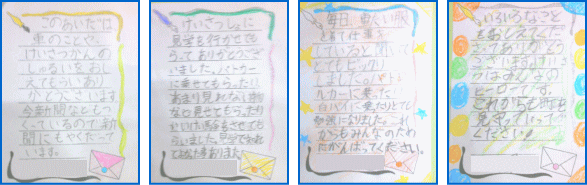 このあいだは
車のことや、
けいさつかんの
しゅるいをおし
えてもらいあり
がとうございます
今新聞などもつ
くっているので新
聞にもやくだって
います。
けいさつしょに
見学を行かせても
らってありがとうござ
いました。パトカー
に乗せてもらったり
あまり見れない
見せてもらったり
させてもら
いました。見学
毎日、重い服
をきて仕事を
していると聞いて
とてもビックリ
しました。パトロー
ルカーに乗ったり
白バイに乗ったりとても
勉強になりました。これ
からもみんなのため
にがんばってください。
いろいろなこと
をおしえてくだ
さってありがとう
ございますけいさ
つはみんなの
ヒーローです。
これからも町を
見守っていって
ください。